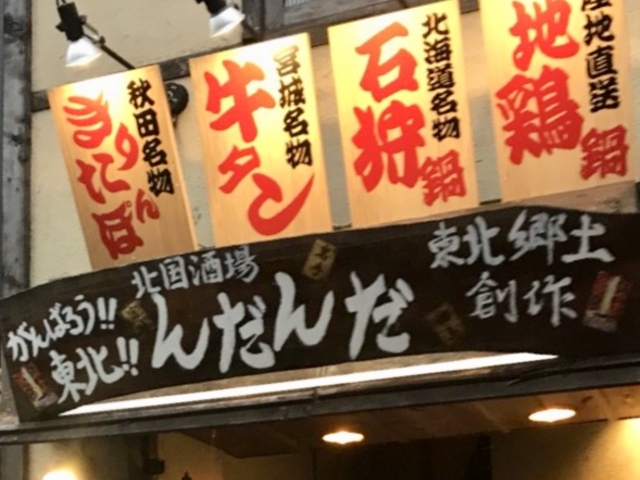 秋田名物
きりたんぽ
宮城名物
牛タン
北海道名物
石狩鍋
産地直送
地鶏鍋
がんばろう!!
東北!!
北国酒場
んだんだ
東北郷土
創作